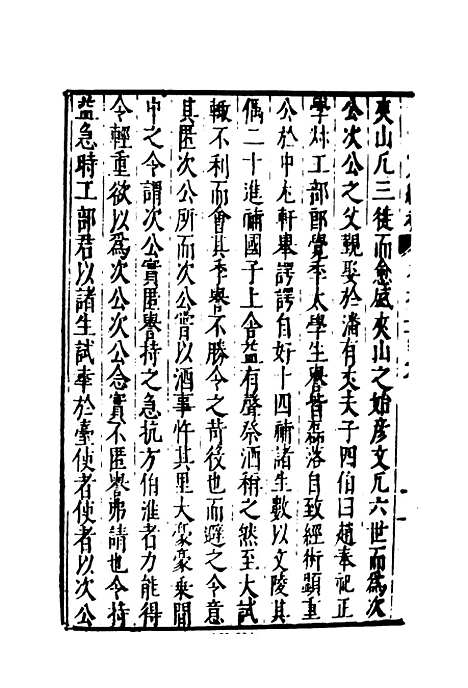 夾山凡三徒而愈盛夾山之始彥文凡六世而為次
公次公之父覲娶於潘有丈夫子四伯曰趙奉祀正
學炑工部郎覺季太學生譽皆磊落自致經術顯重
公於中尤軒舉諤諤自好十四補諸生數以文陵其
偶二十進補國子上舍益有聲祭酒稱之然至大試
輒不利而會其季譽不勝令之苛後也而避之令意
其匿次公所而次公嘗以酒事忤其里大豪豪乗間
中之令謂次公實匿譽持之急抗方伯淮者方能得
令輕重欲以為次公次公念實不匿譽弗請也令持
益急時工部君以諸生試牽於臺使者使者以次公